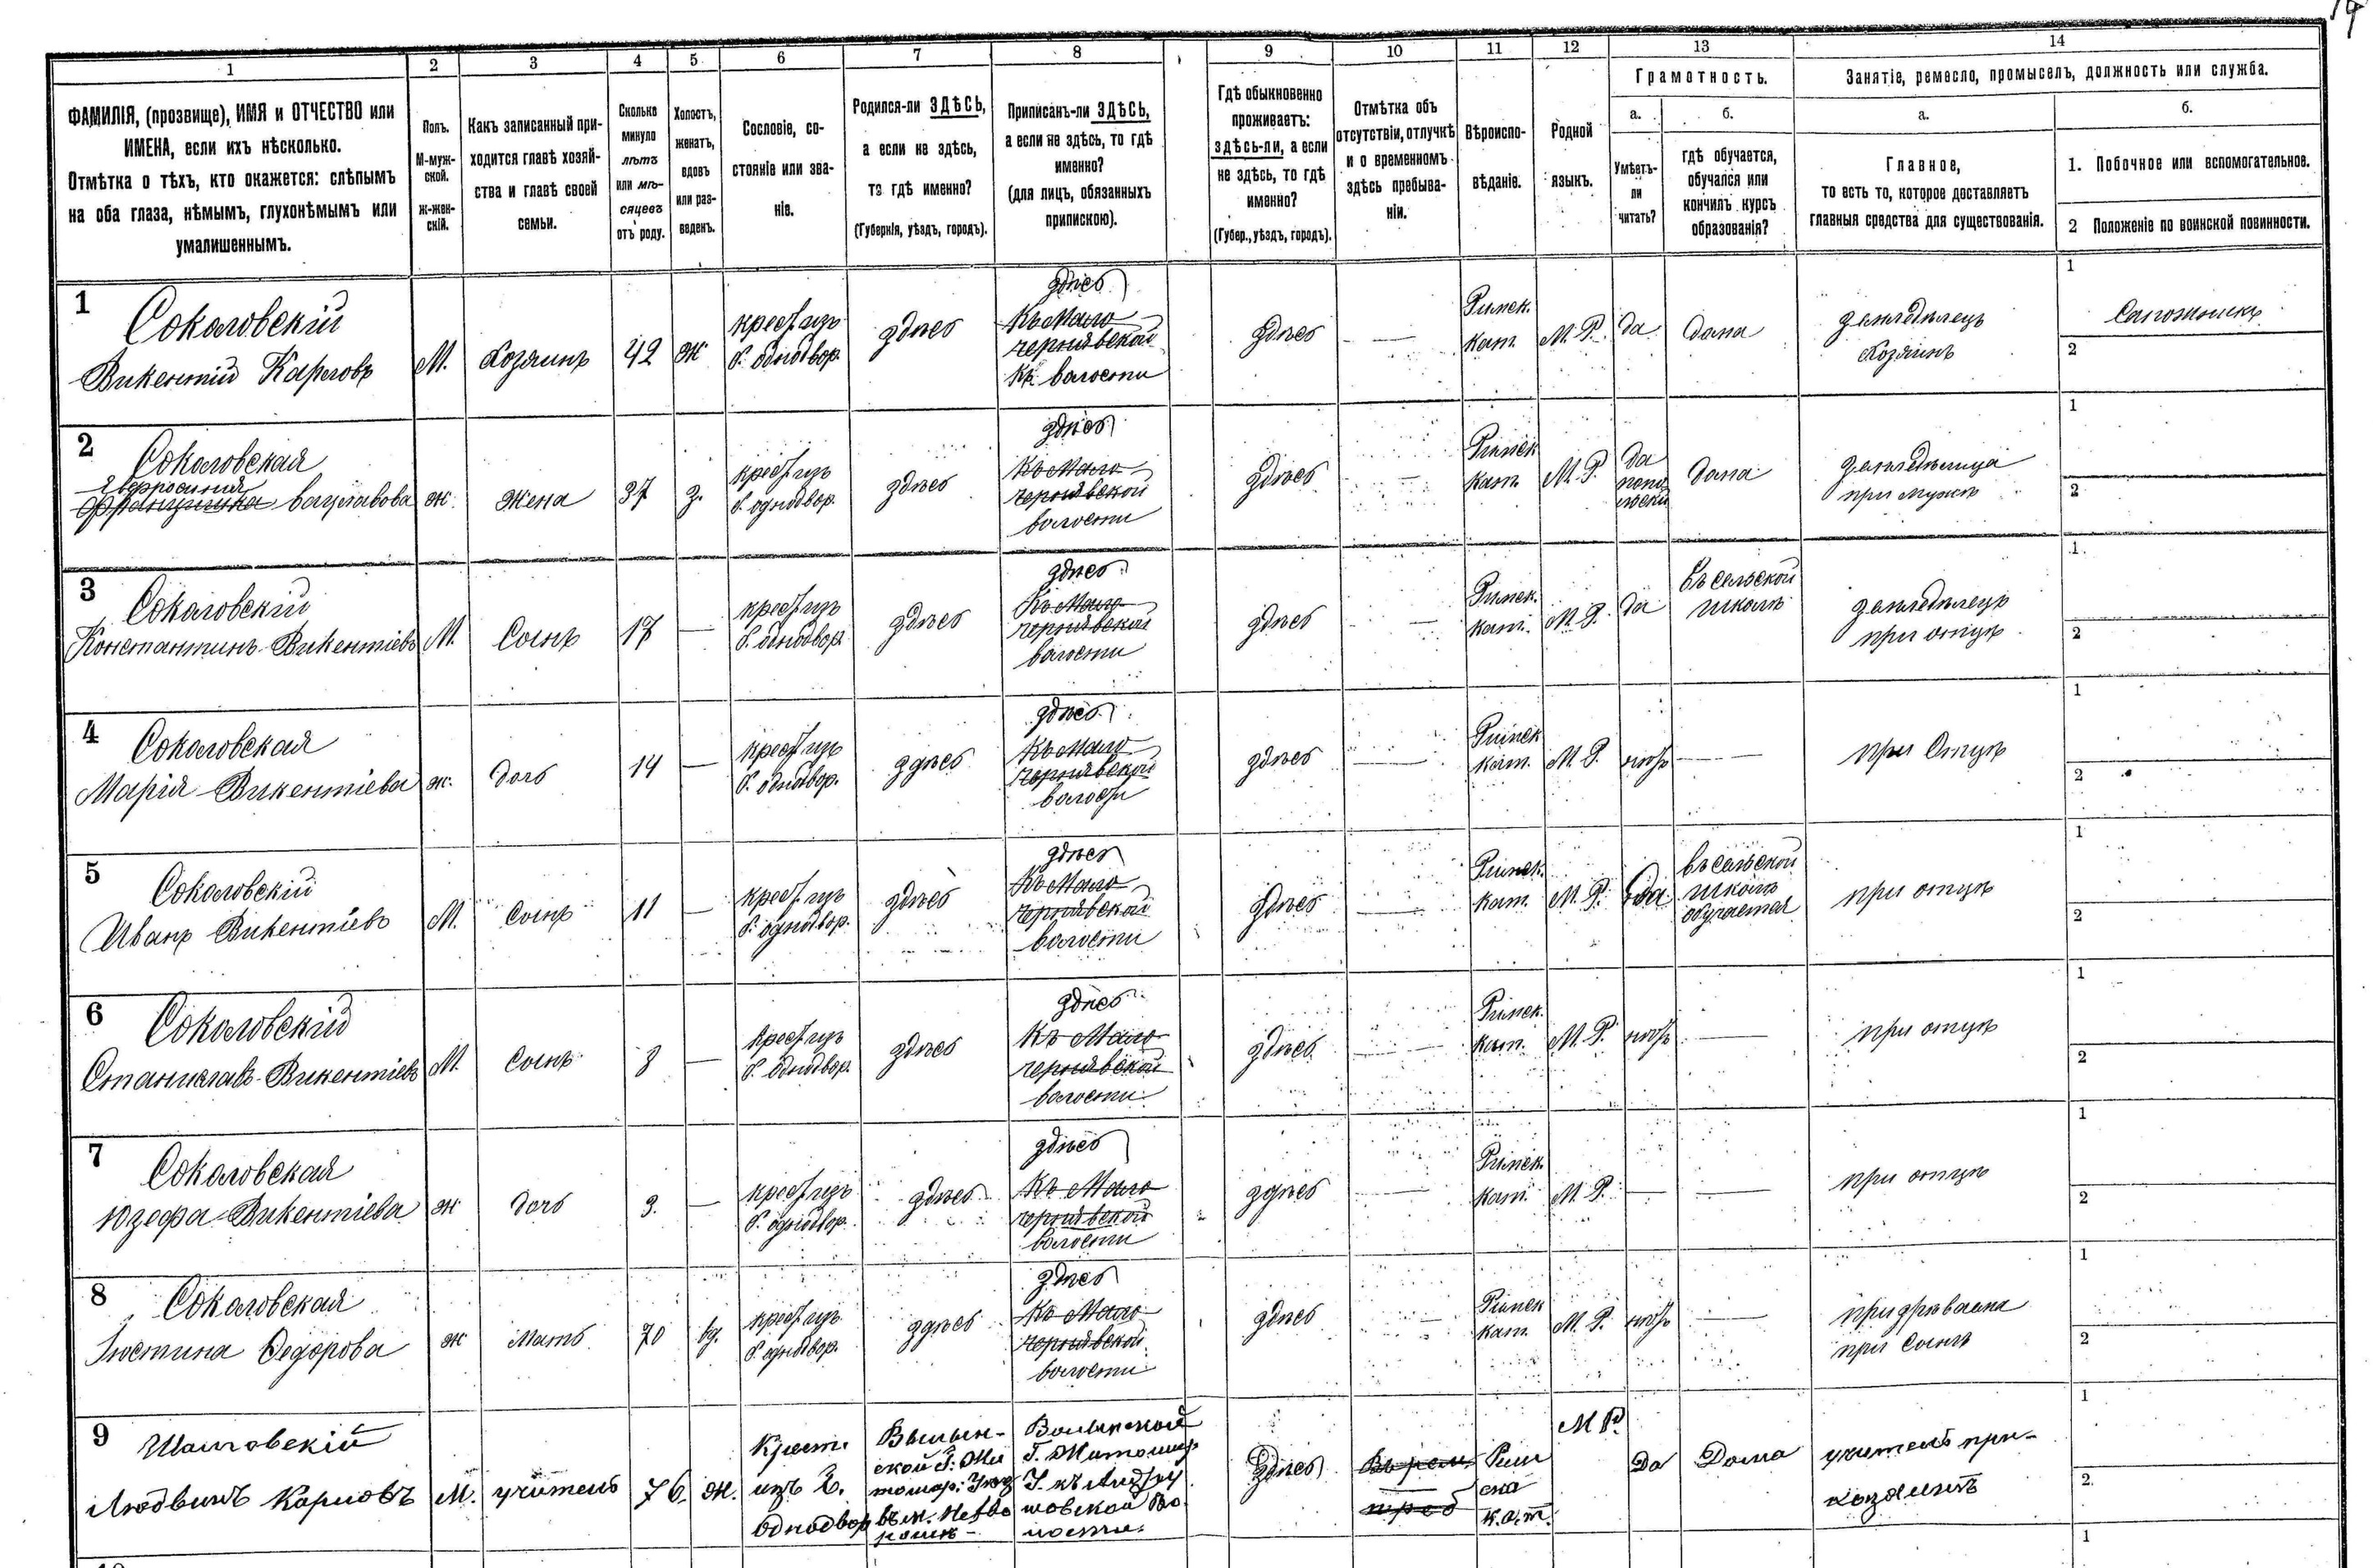 14
1
2
3
4
5
6
7
8
9
10
11
12
13
14
ФАМИЛІЯ, (прозвище), ИМЯ и ОТЧЕСТВО или
ИМЕНА, если ихъ нѣсколько.
Отмѣтка о тѣхъ, кто окажется: слѣпымъ
на оба глаза, нѣмымъ, глухонѣмымъ или
умалишеннымъ.
Полъ.
М-муж-
ской.
Ж-жен-
скій.
Какъ записанный при-
ходится главѣ хозяй-
ства и главѣ своей
семьи.
Сколько
минуло
лѣтъ
или мѣ-
сяцевъ
отъ роду.
Холостъ,
женатъ,
вдовъ
или раз-
веденъ.
Сословіе, со-
стояніе или зва-
ніе.
Родился-ли ЗДѢСЬ,
а если не здѣсь,
то гдѣ именно?
(Губернія, уѣздъ, городъ).
Приписанъ-ли ЗДѢСЬ,
а если не здѣсь, то гдѣ
именно?
(для лицъ, обязанныхъ
припискою).
Гдѣ обыкновенно
проживаетъ:
здѣсь-ли, а если
не здѣсь, то гдѣ
именно?
(Губер., уѣздъ, городъ).
Отмѣтка объ
отсутствіи, отлучкѣ
и о временномъ
здѣсь пребыва-
ніи.
Вѣроиспо-
вѣданіе.
Родной
языкъ.
Грамотность.
а.
Умѣетъ-
ли
читать?
б.
гдѣ обучается,
обучался или
кончилъ курсъ
образованія?
Занятіе, ремесло, промыселъ, должность или служба.
а.
Главное,
то есть то, которое доставляетъ
главныя средства для существованія.
б.
1. Побочное или вспомогательное.
2 Положеніе по воинской повинности.
1
Соколовскій
Викентій Карловъ
М.
Хозяинъ
42
ж
крест. изъ
б. однодвор.
здѣсь
здѣсь
Къ Мало
чернявской
волости
здѣсь
—
Римск.
кат.
М. Р.
да
дома
земледѣлецъ
хозяинъ
1
Сапожникъ
2
2
Соколовская
вацлавова
ж.
жена
37
з.
крест. изъ
б. однодвор.
здѣсь
здѣсь
Къ Мало
чернявской
волости
здѣсь
—
Римск
кат.
М. Р.
да
дома
земледѣлица
при мужѣ
1
2
3
Соколовскій
Константинъ Викентіевъ
М.
Сынъ
17
—
крест. изъ
б. однодвор.
здѣсь
здѣсь
Къ Мало
чернявской
волости
здѣсь
—
Римск.
кат.
М. Р.
да
въ сельской
школѣ
земледѣлецъ
при отцѣ
1
2
4
Соколовская
Марія Викентіева
ж.
дочь
14
—
крест. изъ
б. однодвор.
здѣсь
здѣсь
Къ Мало
чернявской
волости
здѣсь
—
Римск
кат.
М. Р.
нѣтъ
—
при Отцѣ
1
2
5
Соколовскій
Иванъ Викентіевъ
М.
Сынъ
11
—
крест. изъ
б. однодвор.
здѣсь
здѣсь
Къ Мало
чернявской
волости
здѣсь
—
Римск.
кат.
М. Р.
да
въ сельской
школѣ
обучается
при отцѣ
1
2
6
Соколовскій
Станиславъ Викентіевъ
М.
Сынъ
8
—
крест. изъ
б. однодвор.
здѣсь
здѣсь
Къ Мало
чернявской
волости
здѣсь
—
Римск.
кат.
М. Р.
нѣтъ
—
при отцѣ
1
2
7
Соколовская
Юзефа Викентіева
ж
дочь
3.
—
крест. изъ
б. однодвор.
здѣсь
здѣсь
Къ Мало
чернявской
волости
здѣсь
—
Римск.
кат.
М. Р.
—
—
при отцѣ
1
2
8
Соколовская
Юстина Федорова
ж
мать
70
вд.
крест. изъ
б. однодвор.
здѣсь
здѣсь
Къ Мало
чернявской
волости
здѣсь
—
Римск
кат.
М. Р.
нѣтъ
—
при сынѣ
1
2
9
Людвигъ Карловъ
М.
учитель
76.
ж.
Крест.
изъ б.
однодвор
Волын-
ской Г. Жи
томир. Уѣз
Волынской
Г. Житомир.
волости.
здѣсь
Рим
ска
кат.
М Р.
Да
Дома
учитель при-
хозяинѣ
1
2.
1